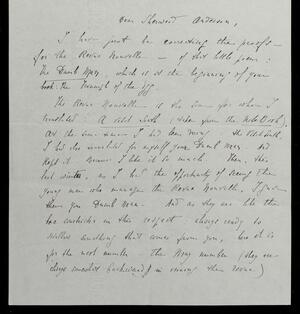 Dear Sherwood Anderson,
I have just be correcting the proofs
for the Revue Nouvelle — of this little poem:
The Dumb Man, which is at the beginning of your
book: the Triumph of the Egg.
The Revue Nouvelle is the one for whom I
translated: A sad
At the same time I had been
I had also translated for myself your Dumb Man and
kept it because I like it so much. Then, this
last winter, as I had the opportunity of seeing the
young men who manage the Revue Nouvelle, I gave
them your Dumb Man. And as they are like the
in this respect always ready to
swallow anything that comes from you, here it is
for the next number — the May number (they are
always somewhat backward) in issuing their